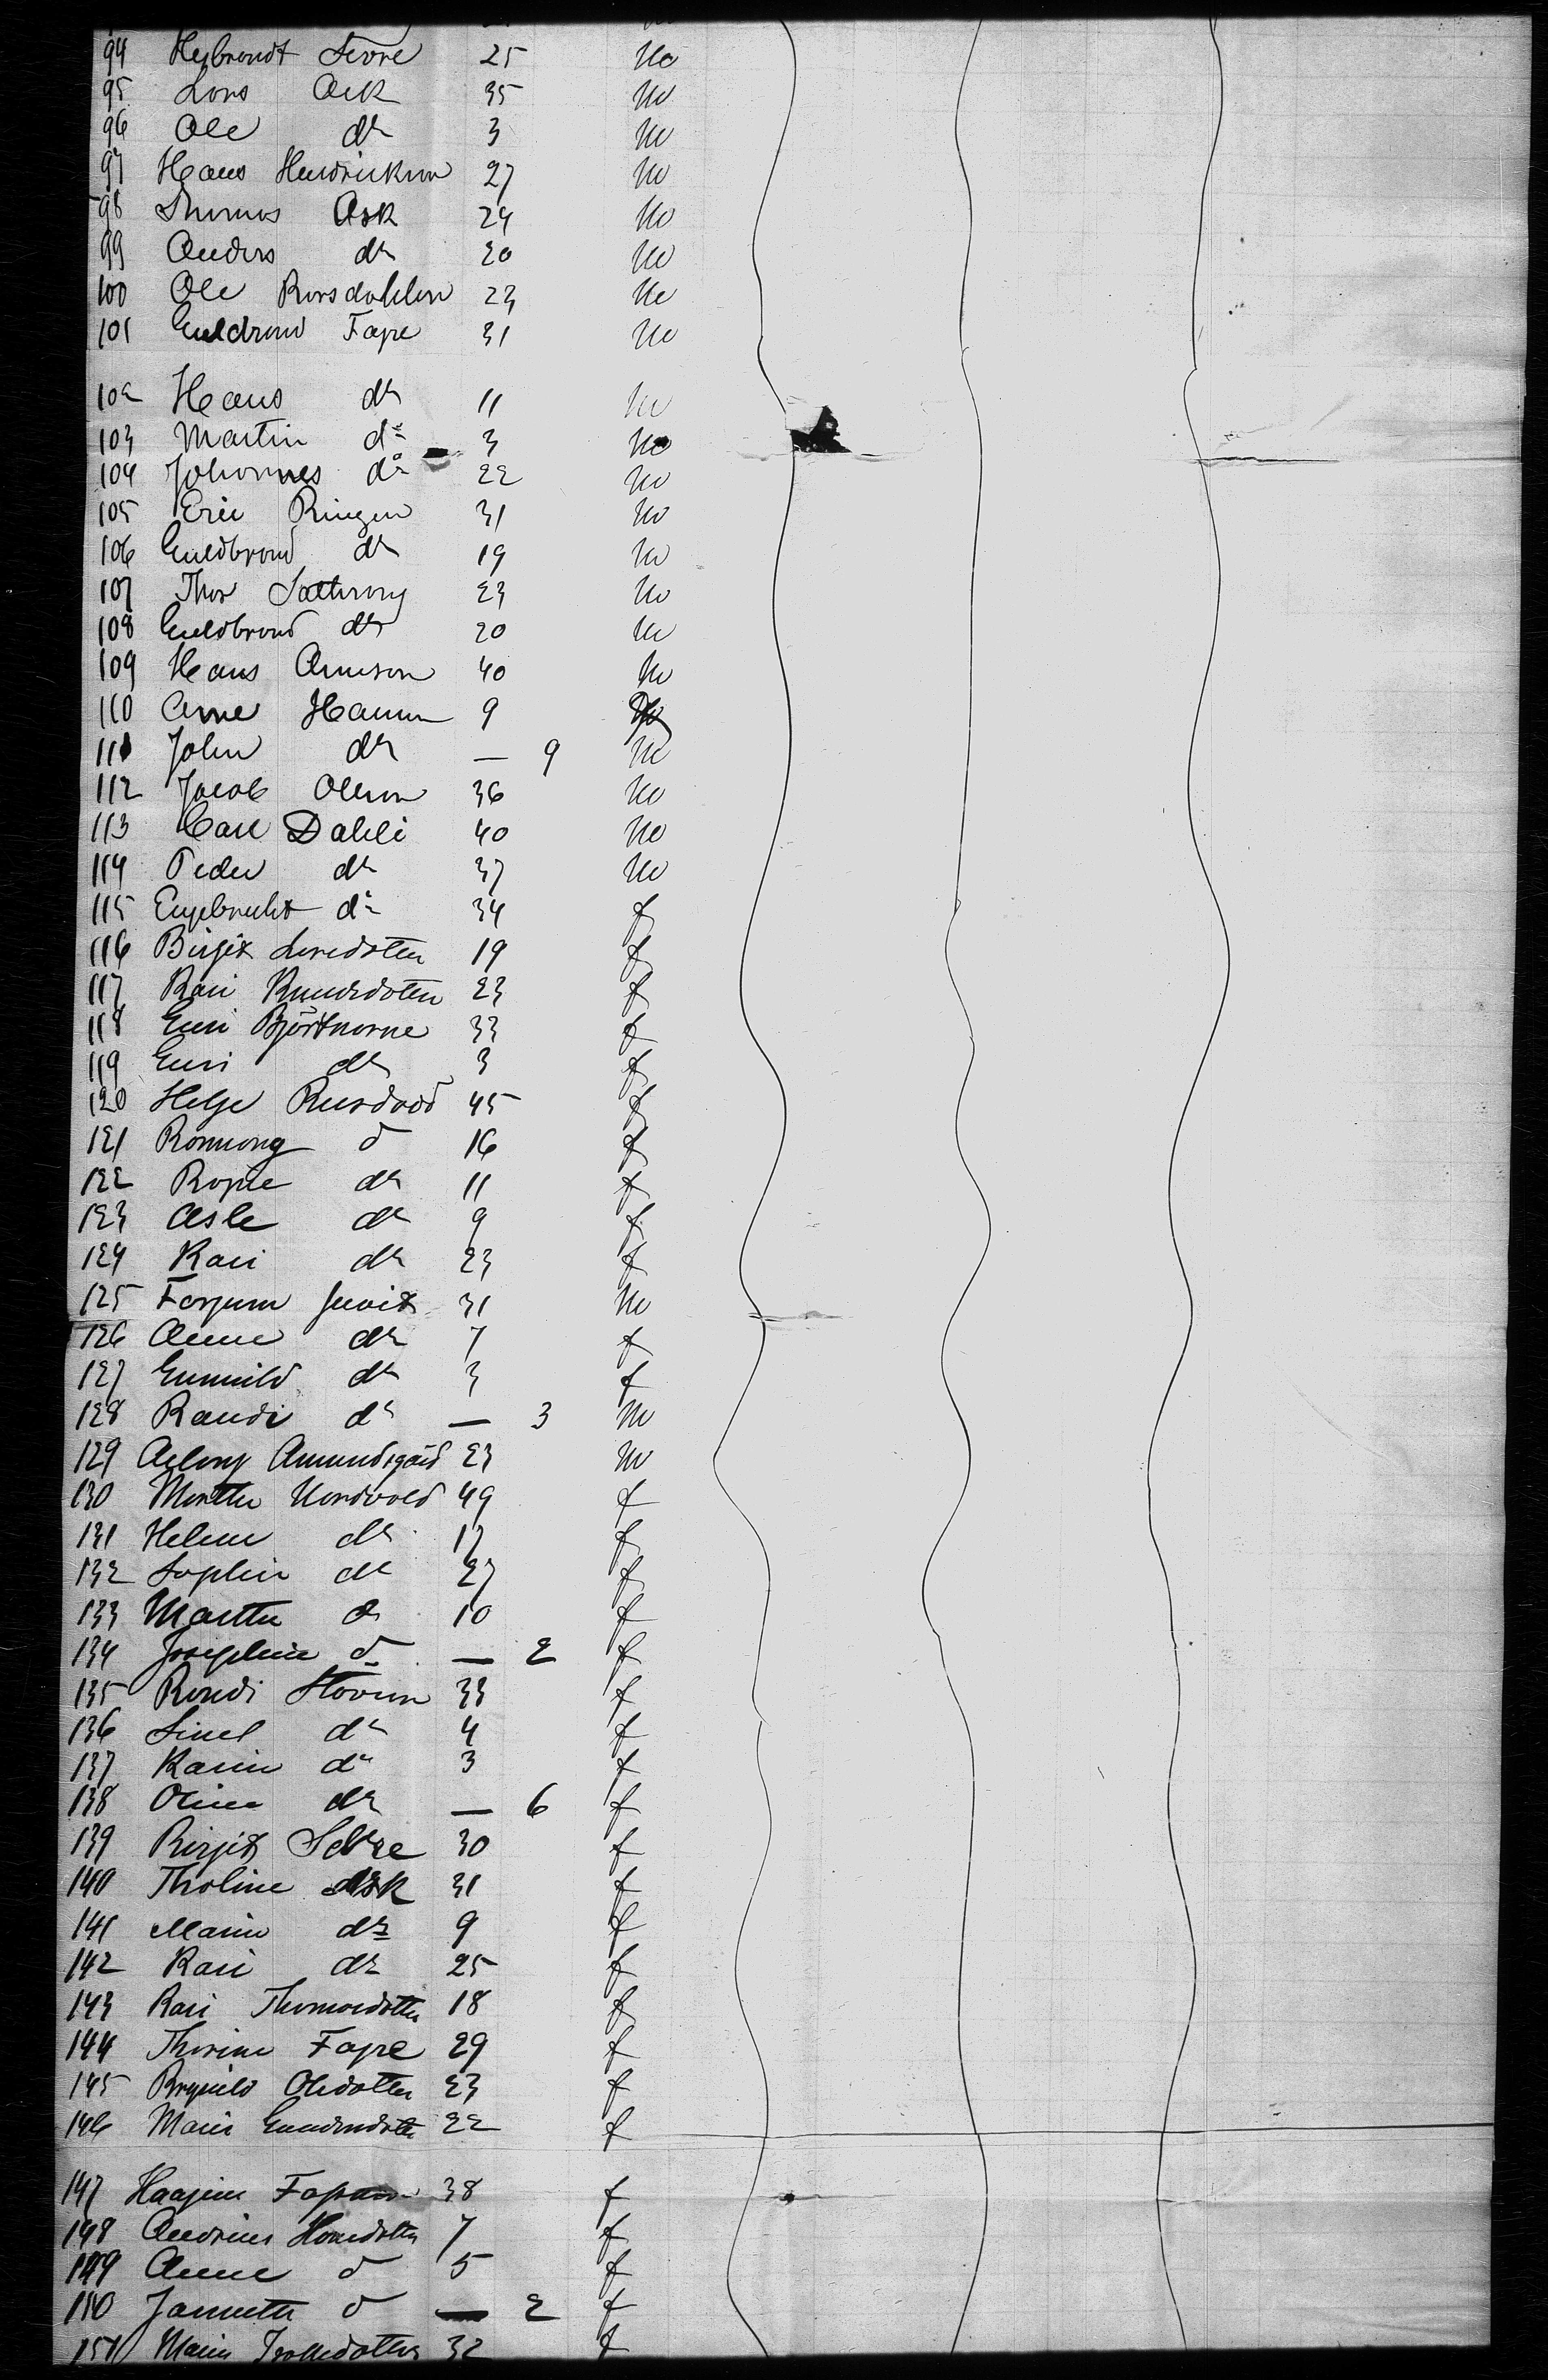 94 Heljbrendt Sevre 25 m
95 Lars Ask 35 m
96 Ole do 3 m
97 Hans Hendrickson 27 m
98 Thomas Ask 24 m
99 Anders do 20 m
100 Ole 23 m
101 Guldrand Fagre 31 m
102 Hans do 11 m
103 Martin do 3 m
104 Johannes do 22 m
105 Eric Ringen 31 m
106 Guldbrand do 19 m
107 Thor 23 m
108 Guldbrand do 20 m
109 Hans Arneson 40 m
110 Arne Hansen 9 m
111 John do — 9 m
112 Jacob Olson 36 m
113 Carl Dahli 40 m
114 Peder do 37 m
115 Engebrecht do 34 f
116 Birgit Larsdatter 19 f
117 Kari Knudsdatter 23 f
118 Guri 33 f
119 Guri do 3 f
120 Helge 45 f
121 Ronnong do 16 f
122 do 11 f
123 Asle do 9 f
124 Kari do 23 f
125 31 m
126 Anne do 7 f
127 Gunnild do 3 f
128 Randi do — 3 m
129 Amundsgård 23 m
130 Marthe Nordvold 49 f
131 Helene do 17 f
132 Sophie do 27 f
133 Marthe do 10 f
134 Josephine do — 2 f
135 Randi 33 f
136 do 4 f
137 Karin do 3 f
138 Oline do — 6 f
139 Birgit Sevre 30 f
140 Tholine Ask 31 f
141 Marin do 9 f
142 Kari do 25 f
143 Kari Thomasdatter 18 f
144 Thorine Fagre 29 f
145 Olsdatter 23 f
146 Marie 22 f
147 38 f
148 Andrine Hansdatter 7 f
149 Anne do 5 f
150 Jannette do — 2 f
151 Marie 32 f